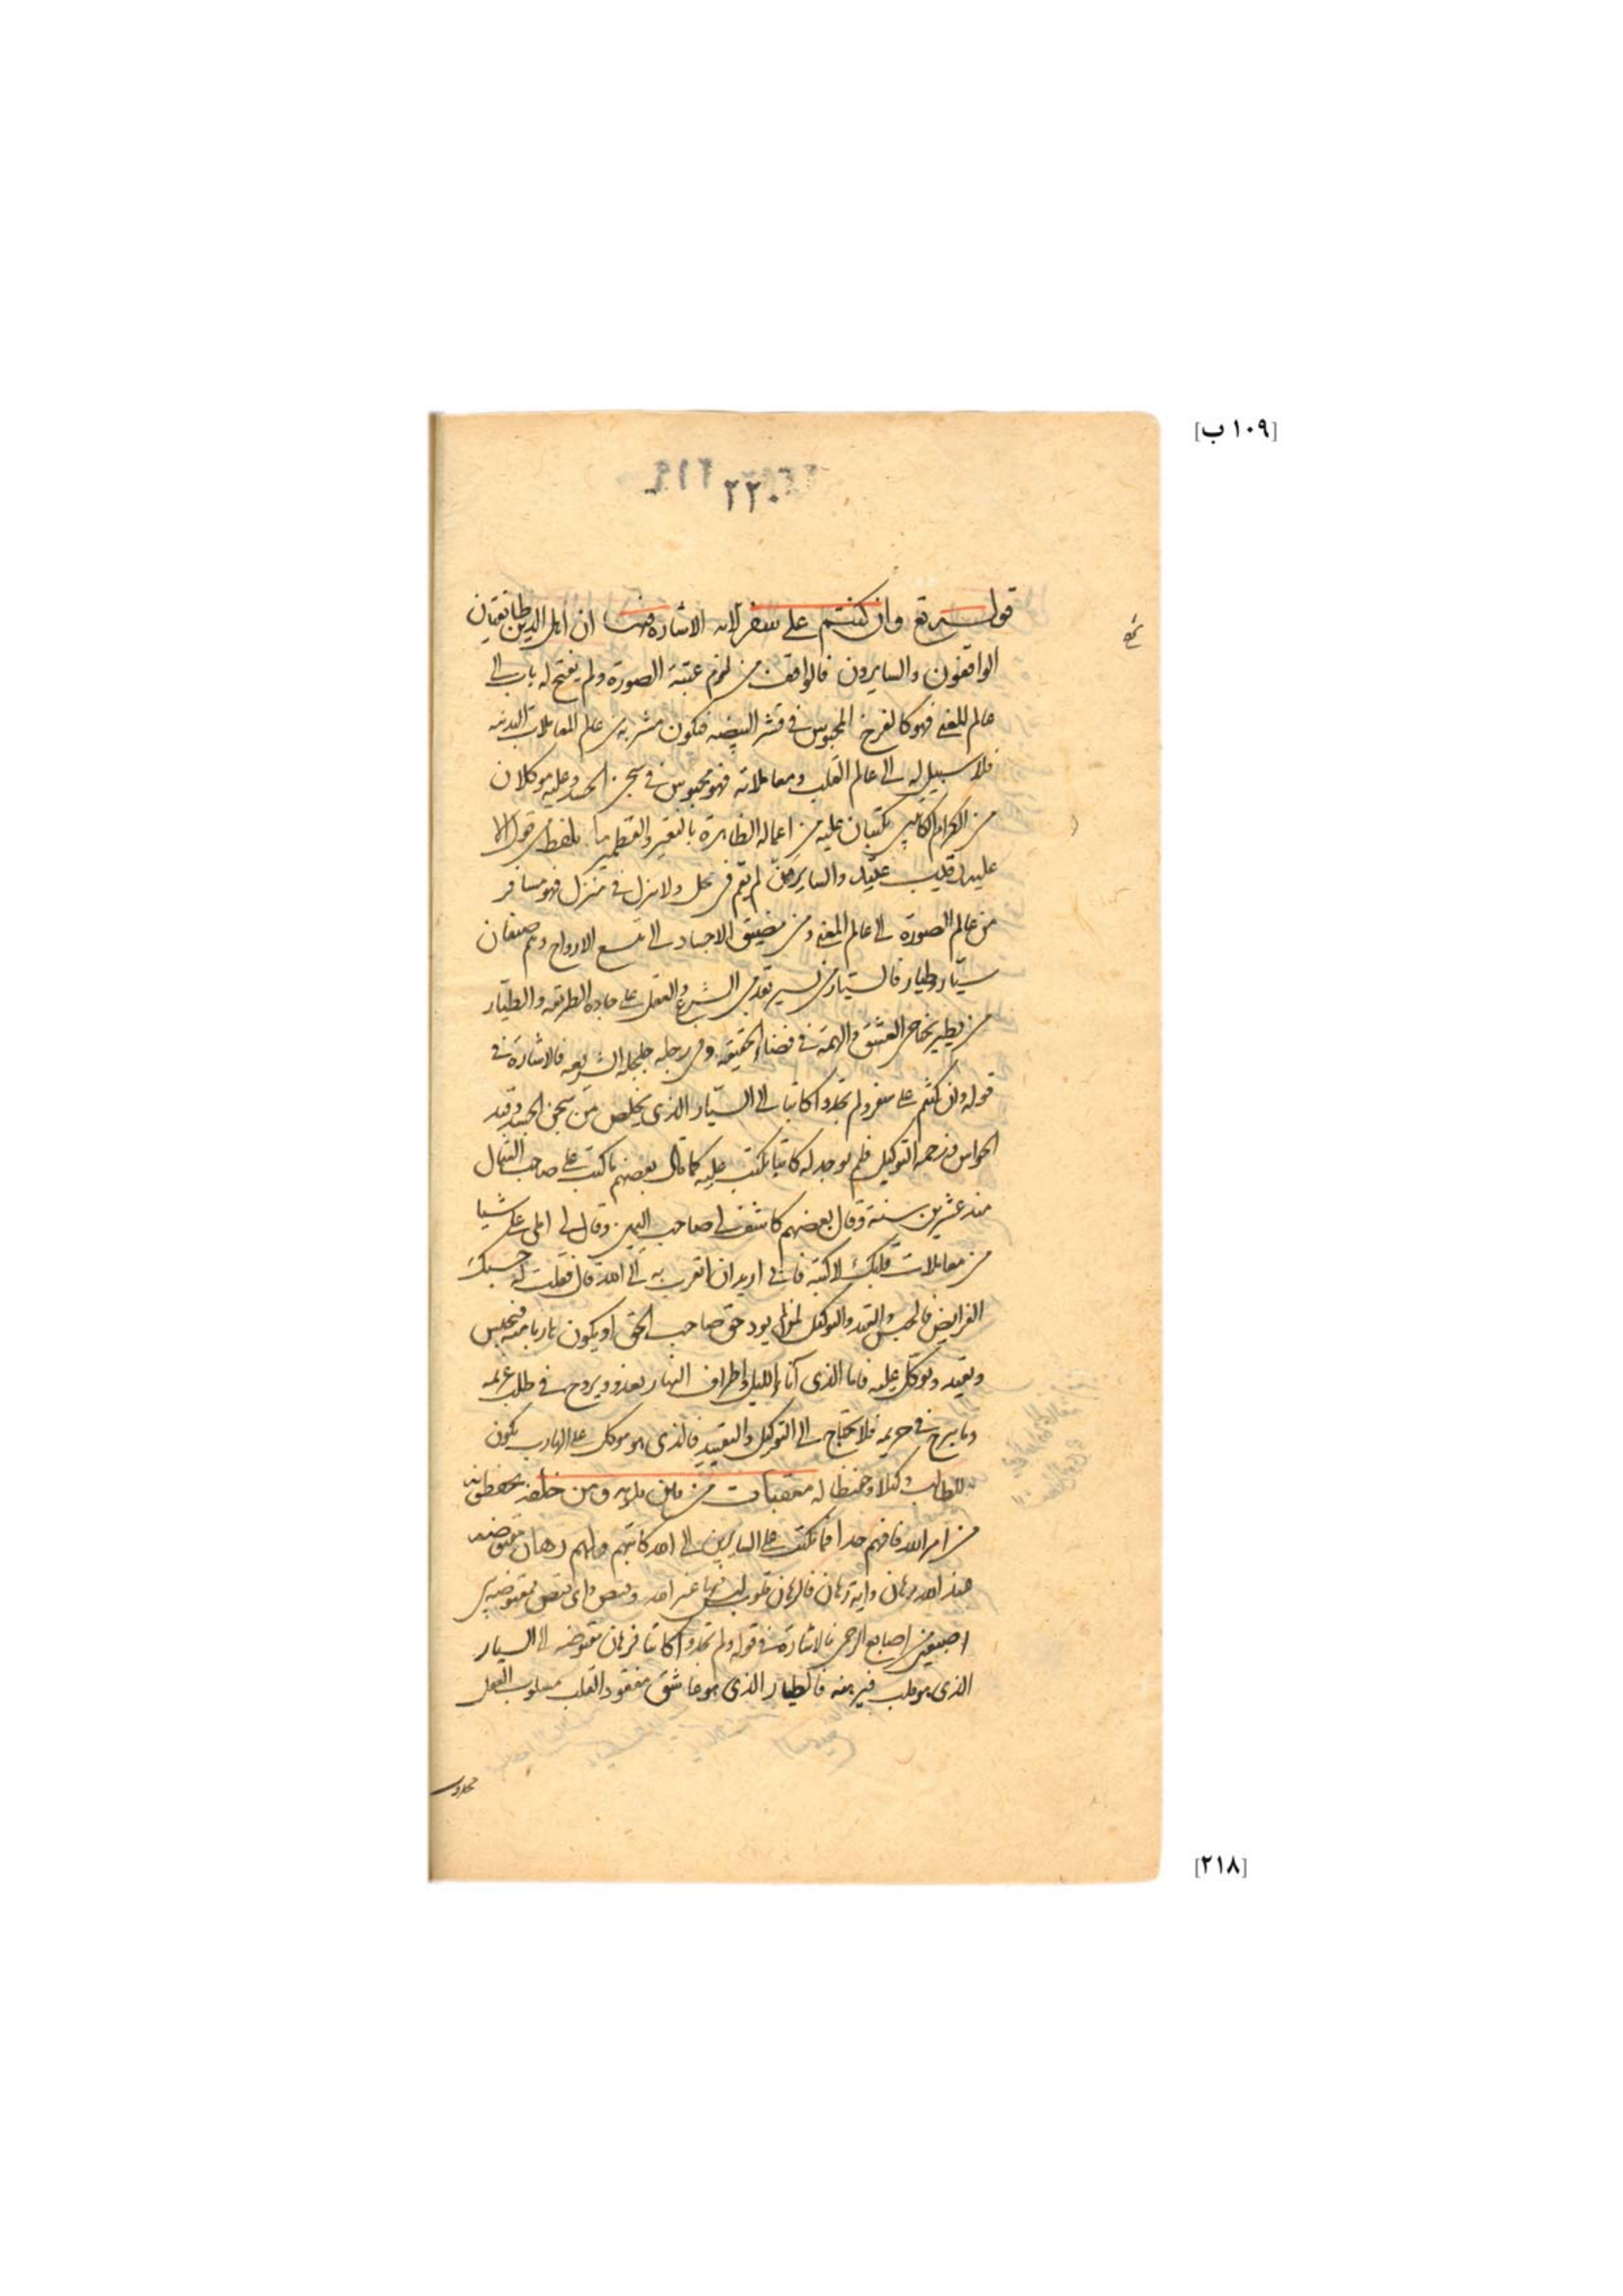 [١٠٩ ب]
٢٢٠
قوله تع وان كنتم على سفر الآية الاشارة فيها ان اهل الدين طايفتان
الواقفون والسايرون فالواقف من لزم عتبة الصورة ولم يفتح له باب الى
عالم المعنى فهو كالفرخ المحبوس في قشر البيضه فيكون مشربه من عالم المعاملات البدنيه
فلا سبيل له الى عالم القلب ومعاملاته فهو محبوس في سجن الجسد وعليه موكلان
من الكرام الكاتبين يكتبان عليه من اعماله الظاهرة بالنقير والقطمير ما يلفظ من قول الا
عليه رقيب عتيد والساير من لم يقم في محل ولا ينزل في منزل فهو مسافر
من عالم الصورة الى عالم المعنى ومن مضيق الاجساد الى متسع الارواح وهم صنفان
سيّار وطيار فالسيّار من يسير بقدمى الشرع والعقل على جادة الطريقه والطيّار
من يطير بجناحى العشق والهمة في فضاء الحقيقه وفي رجله جلجله الشريعه فالاشارة في
قوله وان كنتم على سفر ولم تجدوا كاتبا الى السيّار الذي يخلص من سجن الجسد وقيد
الحواس وزحمة التوكيل فلم يوجد له كاتبا يكتب عليه كما قال بعضهم ما كتب على صاحب الشمال
منذ عشرين سنة وقال بعضهم كاشف لى صاحب اليمين وقال لى املى على شيا
من معاملات قلبك لاكتبه فانى اريد ان اتقرب به الى الله قال فقلت له حسبك
الفرايض فالحبس والقيد والتوكيل لمن لم يود حق صاحب الحق او يكون هاربا منه فيحبس
ويقيد ويوكّل عليه فاما الذى آناء الليل واطراف النهار يغدو ويروح فى طلب غريمه
وما يبرح في حريمه فلا يحتاج الى التوكيل والتقييد فالذى هو موكل على الهارب يكون
للطالب وكيلا وحفيظا له معقبات من بين يديه ومن خلفه يحفظونه
من امر الله فافهم جدا فما يكتب على السايرين الى الله كاتبهم ولهم رهان مقبوضه
عند الله رهان واية رهان فالرهان قلوب ليس فيها غير الله وقبض واى قبض مقبوضة بين
اصبعين من اصابع الرحمن فالاشارة في قوله ولم تجدوا كاتبا فرهان مقبوضه الى السيار
الذى هو قلب فيرهنه فالطيار الذى هو عاشق مفقود القلب مسلوب العقل
[٢١٨]